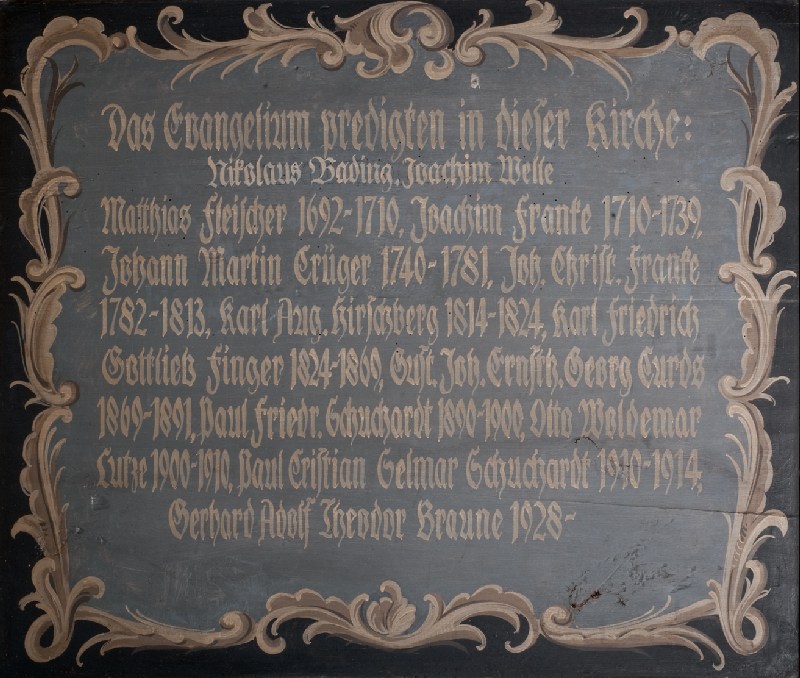 Das Evangelium predigten in dieser Kirche:
Nikolaus Bading, Joachim Welle
Matthias Fleischer 1692-1710, Joachim Franke 1710-1739,
Johann Martin Crüger 1740-1781, Joh. Christ. Franke
1782-1813, Karl Aug. Hirschberg 1814-1824, Karl Friedrich
Gottlieb Finger 1824-1869, Gust. Joh. Ernst Georg Curds
1869-1891, Paul Friedr. Schuchardt 1890-1900, Otto Woldemar
Lutze 1900-1910, Paul Cristian Selmar Schuchardt 1910-1914,
Gerhard Adolf Theodor Braune 1928-